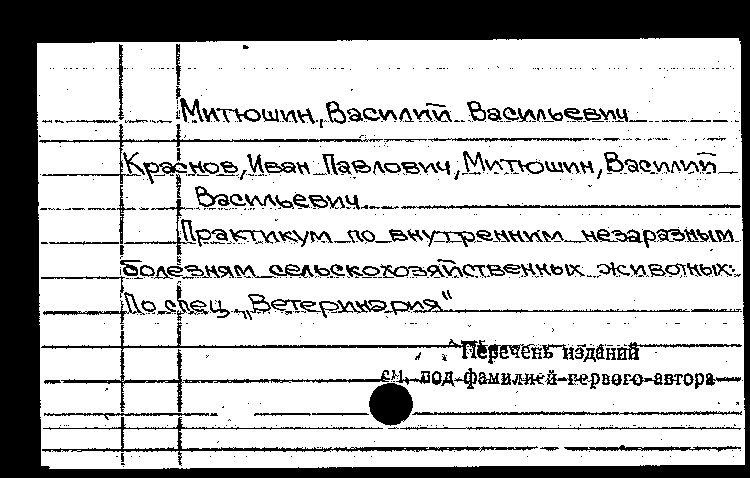 Митюшин, Василий Васильевич
Краснов, Иван Павлович, Митюшин, Василий
Васильевич.
Практикум по внутренним незаразным
болезням сельскохозяйственных животных:
По спец. „Ветеринария"
Перечень изданий
см. под фамилией первого автора